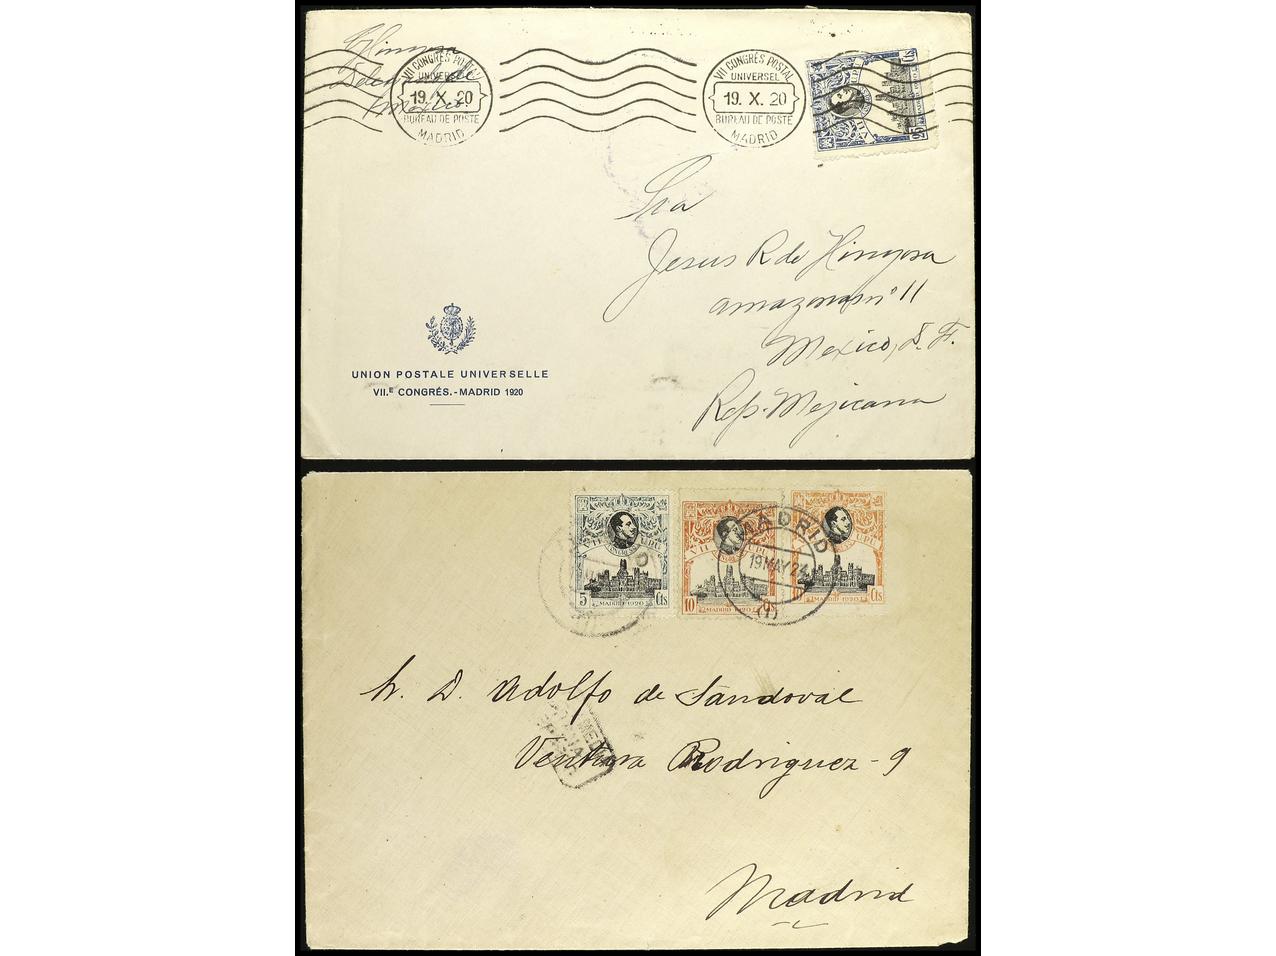 Hinojosa
Mexico.
VII CONGRÉS POSTAL
UNIVERSEL
19. X. 20
BUREAU DE POSTE
MADRID
VII CONGRÉS POSTAL
UNIVERSEL
19. X. 20
BUREAU DE POSTE
MADRID
25 Cts
Sra
Jesus R de Hinojosa
amazonas nº 11
Mexico, D. F.
Rep. Mejicana
UNION POSTALE UNIVERSELLE
VII.E CONGRÉS.-MADRID 1920
VII CONGRESO UPU
5 MADRID 1920 Cts
VII CONGRESO UPU
10 MADRID 1920
UPU
10 MADRID 1920 Cts
MADRID
19 MAY 24
(1)
D. Adolfo de Sandoval
Ventura Rodriguez - 9
Madrid